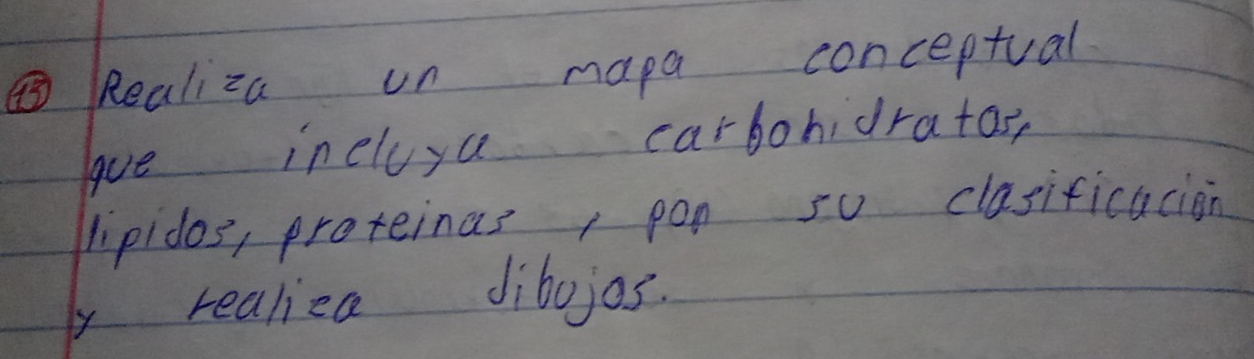 13 Realiza un mapa conceptual
que incluya carbohidratos,
lipidos, proteinas, pon su clasificación
y realiza dibujos.